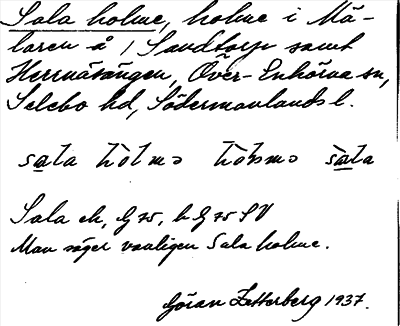 Sala holme, holme i Mä-
laren å 1 Sandtorp samt
Herrnäsängen, Över-Enhörna sn,
Selebo hd, Södermanlands l.
sala hòlmə hòlmə sàla
Sala ek, G 75, h G 75 SV
Man säger vanligen Sala holme.
Göran Zetterberg 1937.